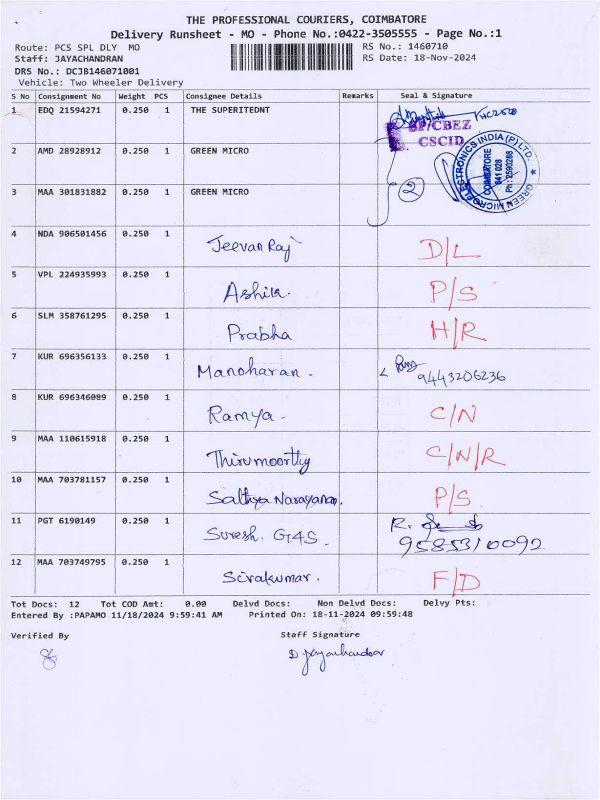 THE PROFESSIONAL COURIERS, COIMBATORE
Delivery Runsheet - MO - Phone No.:0422-3505555 - Page No.:1
Route: PCS SPL DLY MO RS No.: 1460710
Staff: JAYACHANDRAN RS Date: 18-Nov-2024
DRS No.: DCJB146071001
Vehicle: Two Wheeler Delivery
S No Consignment No Weight PCS Consignee Details Remarks Seal & Signature
1 EDQ 21594271 0.250 1 THE SUPERITEDNT
SP/CBEZ
CSCID
2 AMD 28928912 0.250 1 GREEN MICRO
GREEN MICROELECTRONICS INDIA (P) LTD.
COIMBATORE
641 028
Ph : 2590288
2
3 MAA 301831882 0.250 1 GREEN MICRO
4 NDA 906501456 0.250 1 Jeevan Raj D/L
5 VPL 224935993 0.250 1 Ashik. P/S
6 SLM 358761295 0.250 1 Prabha H/R
7 KUR 696356133 0.250 1 Manoharan. 9443206236
8 KUR 696346089 0.250 1 Ramya - C/N
9 MAA 110615918 0.250 1 Thirumoorthy C/N/R
10 MAA 703781157 0.250 1 Sathya Narayanan. P/S
11 PGT 6190149 0.250 1 Suresh. G4S. R.
9585310092
12 MAA 703749795 0.250 1 Sivakumar. F/D
Tot Docs: 12 Tot COD Amt: 0.00 Delvd Docs: Non Delvd Docs: Delvy Pts:
Entered By :PAPAMO 11/18/2024 9:59:41 AM Printed On: 18-11-2024 09:59:48
Verified By Staff Signature
D Jayachandran